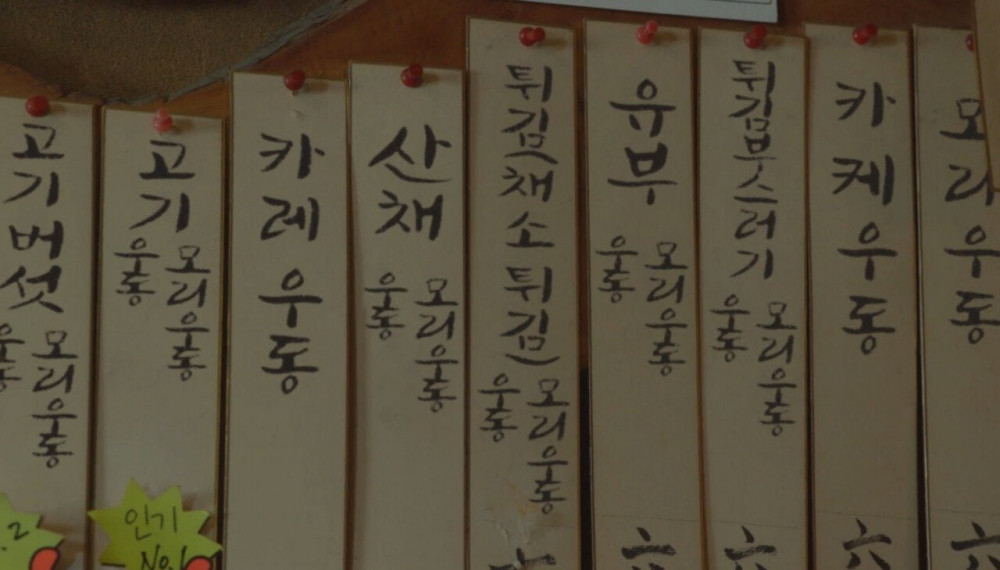 고기버섯
우동
모리우동
고기
우동
모리우동
인기
No.1
카레우동
산채
우동
모리우동
튀김(채소튀김)
우동
모리우동
유부
우동
모리우동
六
튀김부스러기
우동
모리우동
六
카케우동
六
모리우동
六